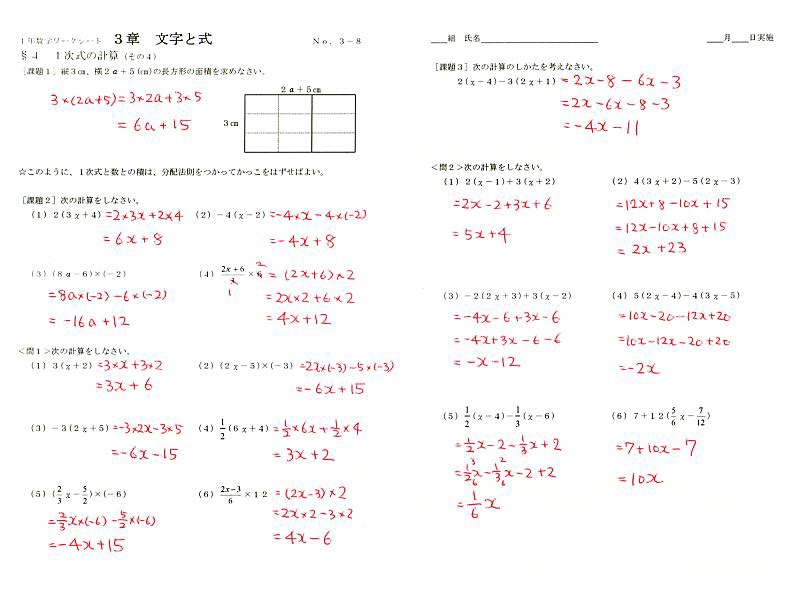 1年数学ワークシート 3章 文字と式 No. 3-8
§4 1次式の計算 (その4)
[課題1] 縦3cm、横2a+5(cm)の長方形の面積を求めなさい。
2a+5cm
3cm
3×(2a+5)=3×2a+3×5
=6a+15
☆このように、1次式と数との積は、分配法則をつかってかっこをはずせばよい。
[課題2] 次の計算をしなさい。
(1) 2(3χ+4)=2×3x+2×4
=6x+8
(2) -4(χ-2)=-4×x-4×(-2)
=-4x+8
(3) (8a-6)×(-2)
=8a×(-2)-6×(-2)
=-16a+12
(4) (2x+6)/3×6 2 1 =(2x+6)×2
=2x×2+6×2
=4x+12
<問1>次の計算をしなさい。
(1) 3(χ+2)=3×x+3×2
=3x+6
(2) (2χ-5)×(-3)=2x×(-3)-5×(-3)
=-6x+15
(3) -3(2χ+5)=-3×2x-3×5
=-6x-15
(4) 1/2(6χ+4)=1/2×6x+1/2×4
=3x+2
(5) (2/3χ-5/2)×(-6)
=2/3x×(-6)-5/2×(-6)
=-4x+15
(6) (2x-3)/6×12 =(2x-3)×2
=2x×2-3×2
=4x-6
組 氏名 月 日実施
[課題3] 次の計算のしかたを考えなさい。
2(χ-4)-3(2χ+1)=2x-8-6x-3
=2x-6x-8-3
=-4x-11
<問2>次の計算をしなさい。
(1) 2(χ-1)+3(χ+2)
=2x-2+3x+6
=5x+4
(2) 4(3χ+2)-5(2χ-3)
=12x+8-10x+15
=12x-10x+8+15
=2x+23
(3) -2(2χ+3)+3(χ-2)
=-4x-6+3x-6
=-4x+3x-6-6
=-x-12
(4) 5(2χ-4)-4(3χ-5)
=10x-20-12x+20
=10x-12x-20+20
=-2x
(5) 1/2(χ-4)-1/3(χ-6)
=1/2x-2-1/3x+2
=1/2 3/6 x-1/3 2/6 x-2+2
=1/6x
(6) 7+12(5/6χ-7/12)
=7+10x-7
=10x